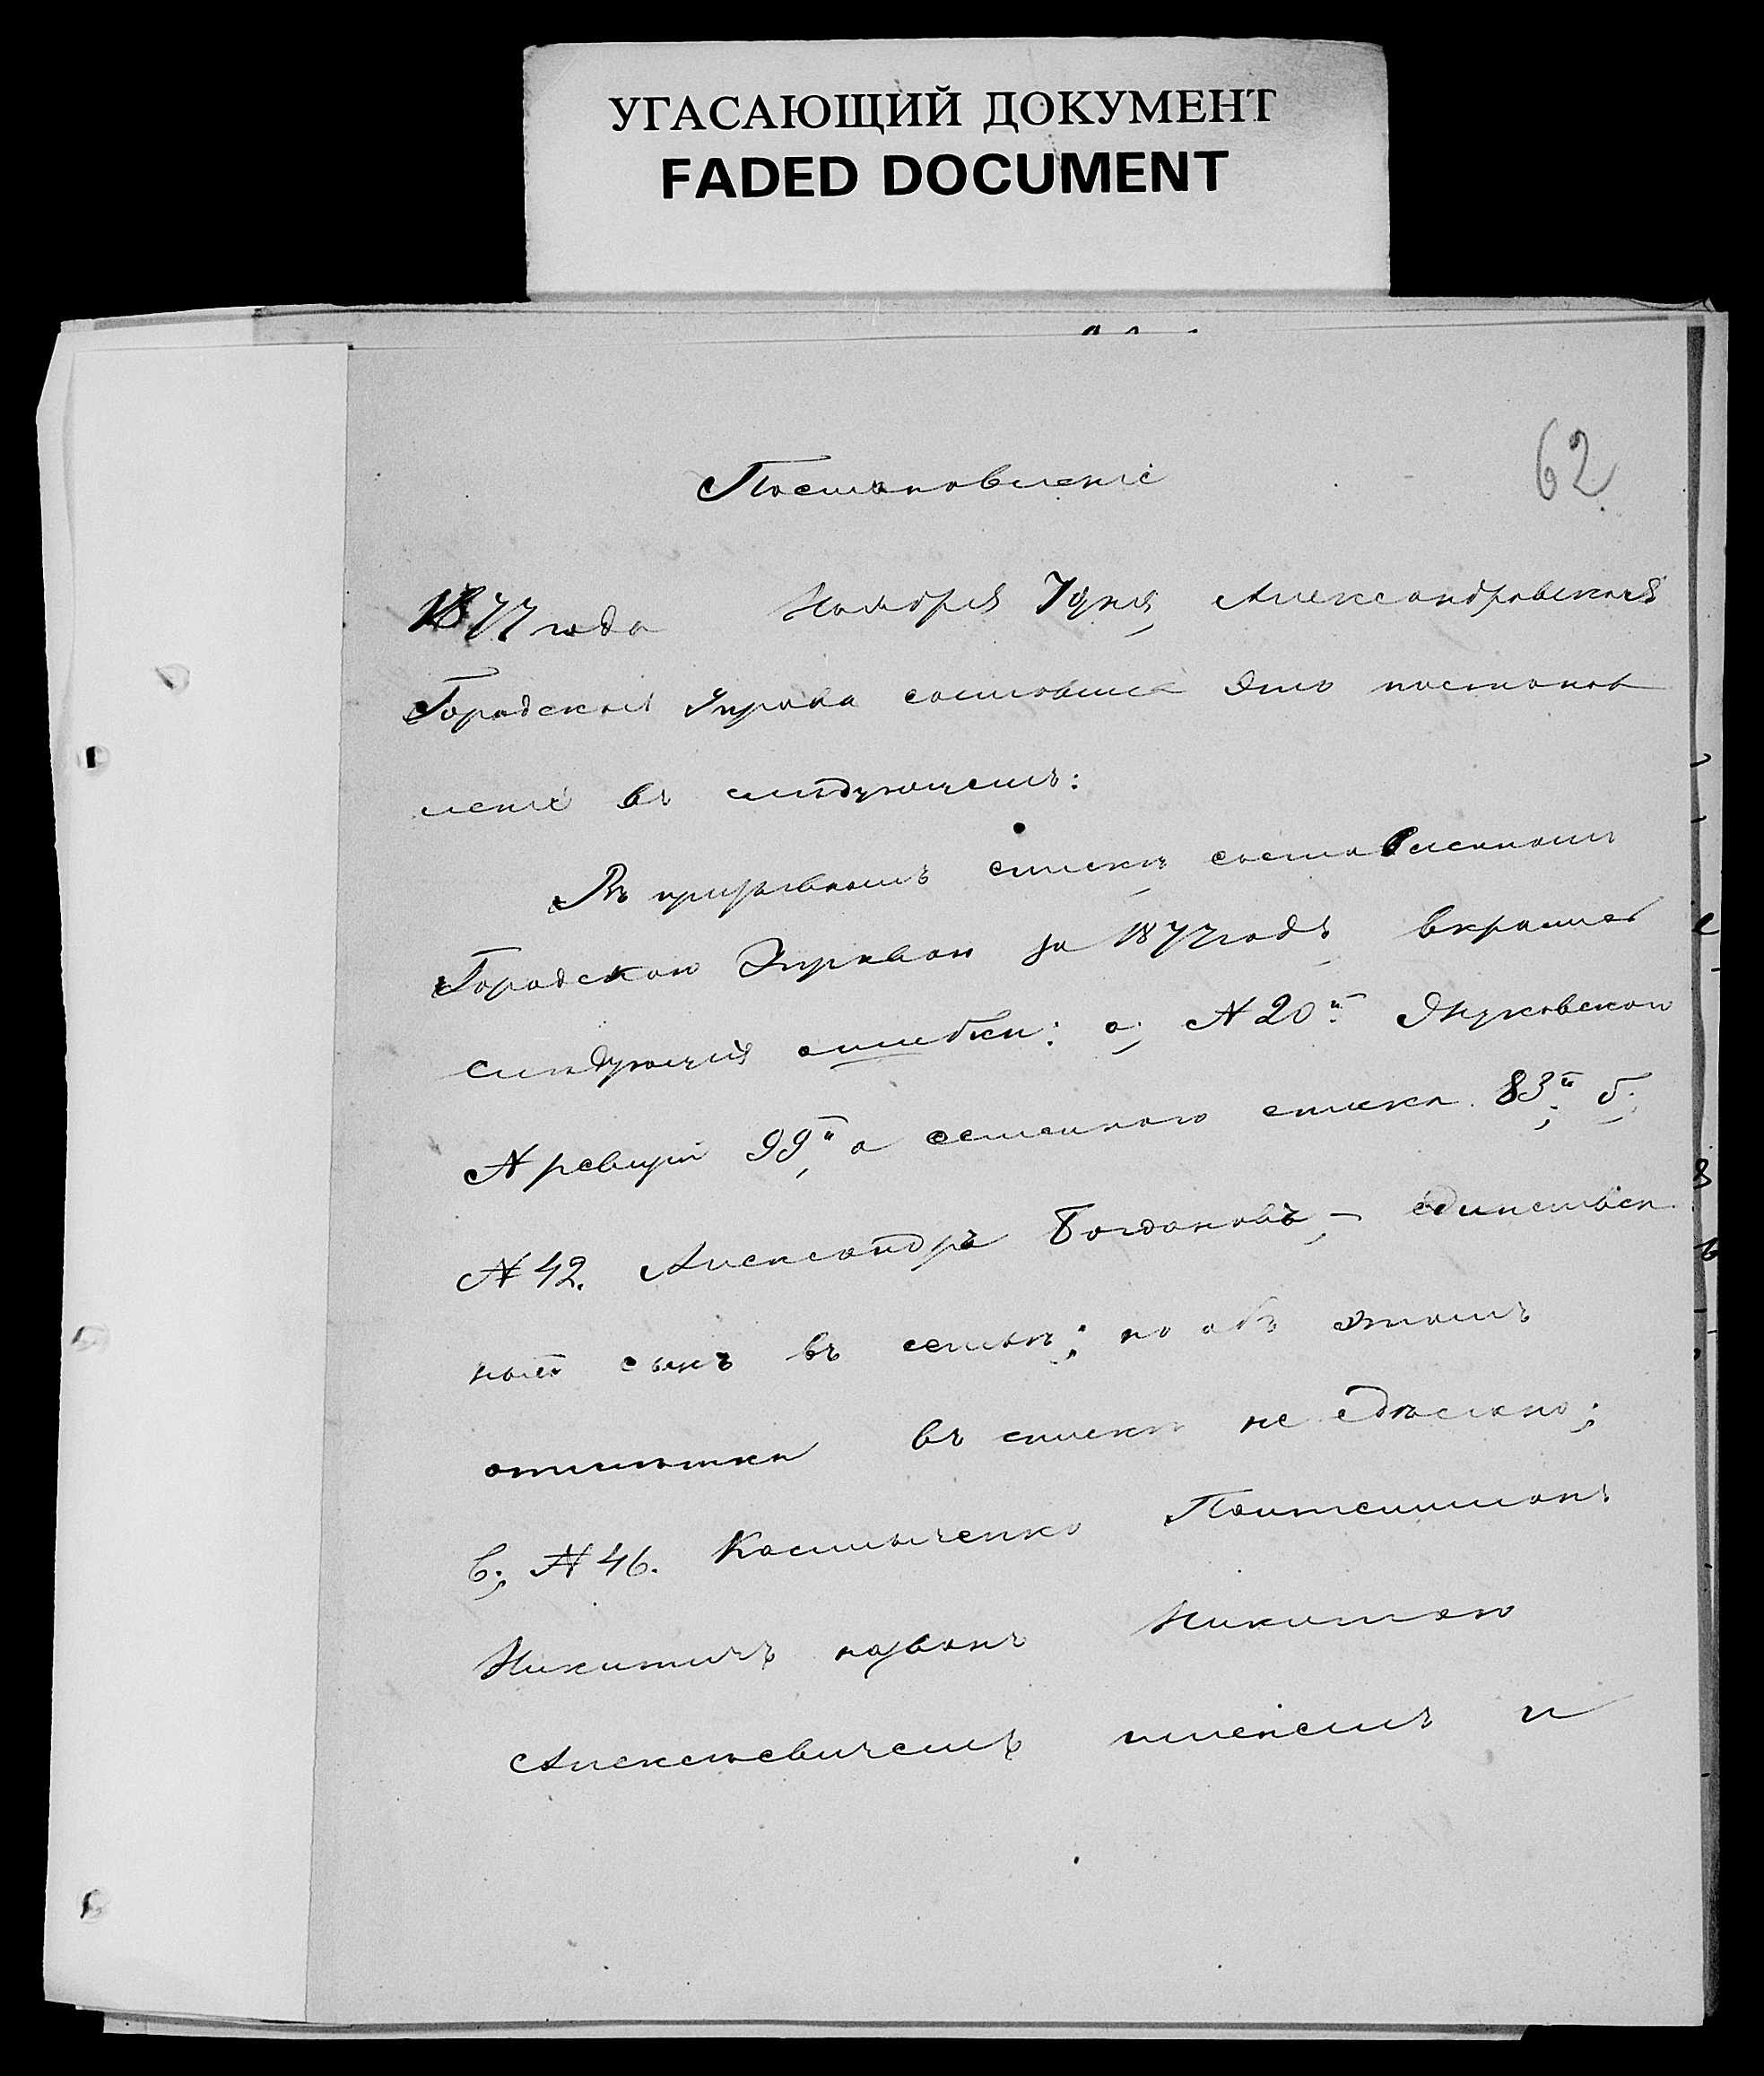 УГАСАЮЩИЙ ДОКУМЕНТ
FADED DOCUMENT
62
Постановленіе
1877 года Ноября 7 дня, Александровская
Городская Управа составила это постанов
леніе въ слѣдующемъ:
Въ призывномъ спискѣ, составленномъ
Городскою Управою за 1877 годъ вкрались
слѣдующія ошибки: а, N 20й
N ревизіи 99й, а семейнаго списка 83й; б;
N 42. Александръ Богдановъ, – единствен
ный сынъ въ семьѣ; но объ этомъ
отмѣтки въ спискѣ не сдѣлано;
в; N 46. Пантелимонъ
Никитичъ названъ Никитою
Алексѣевичемъ именемъ и